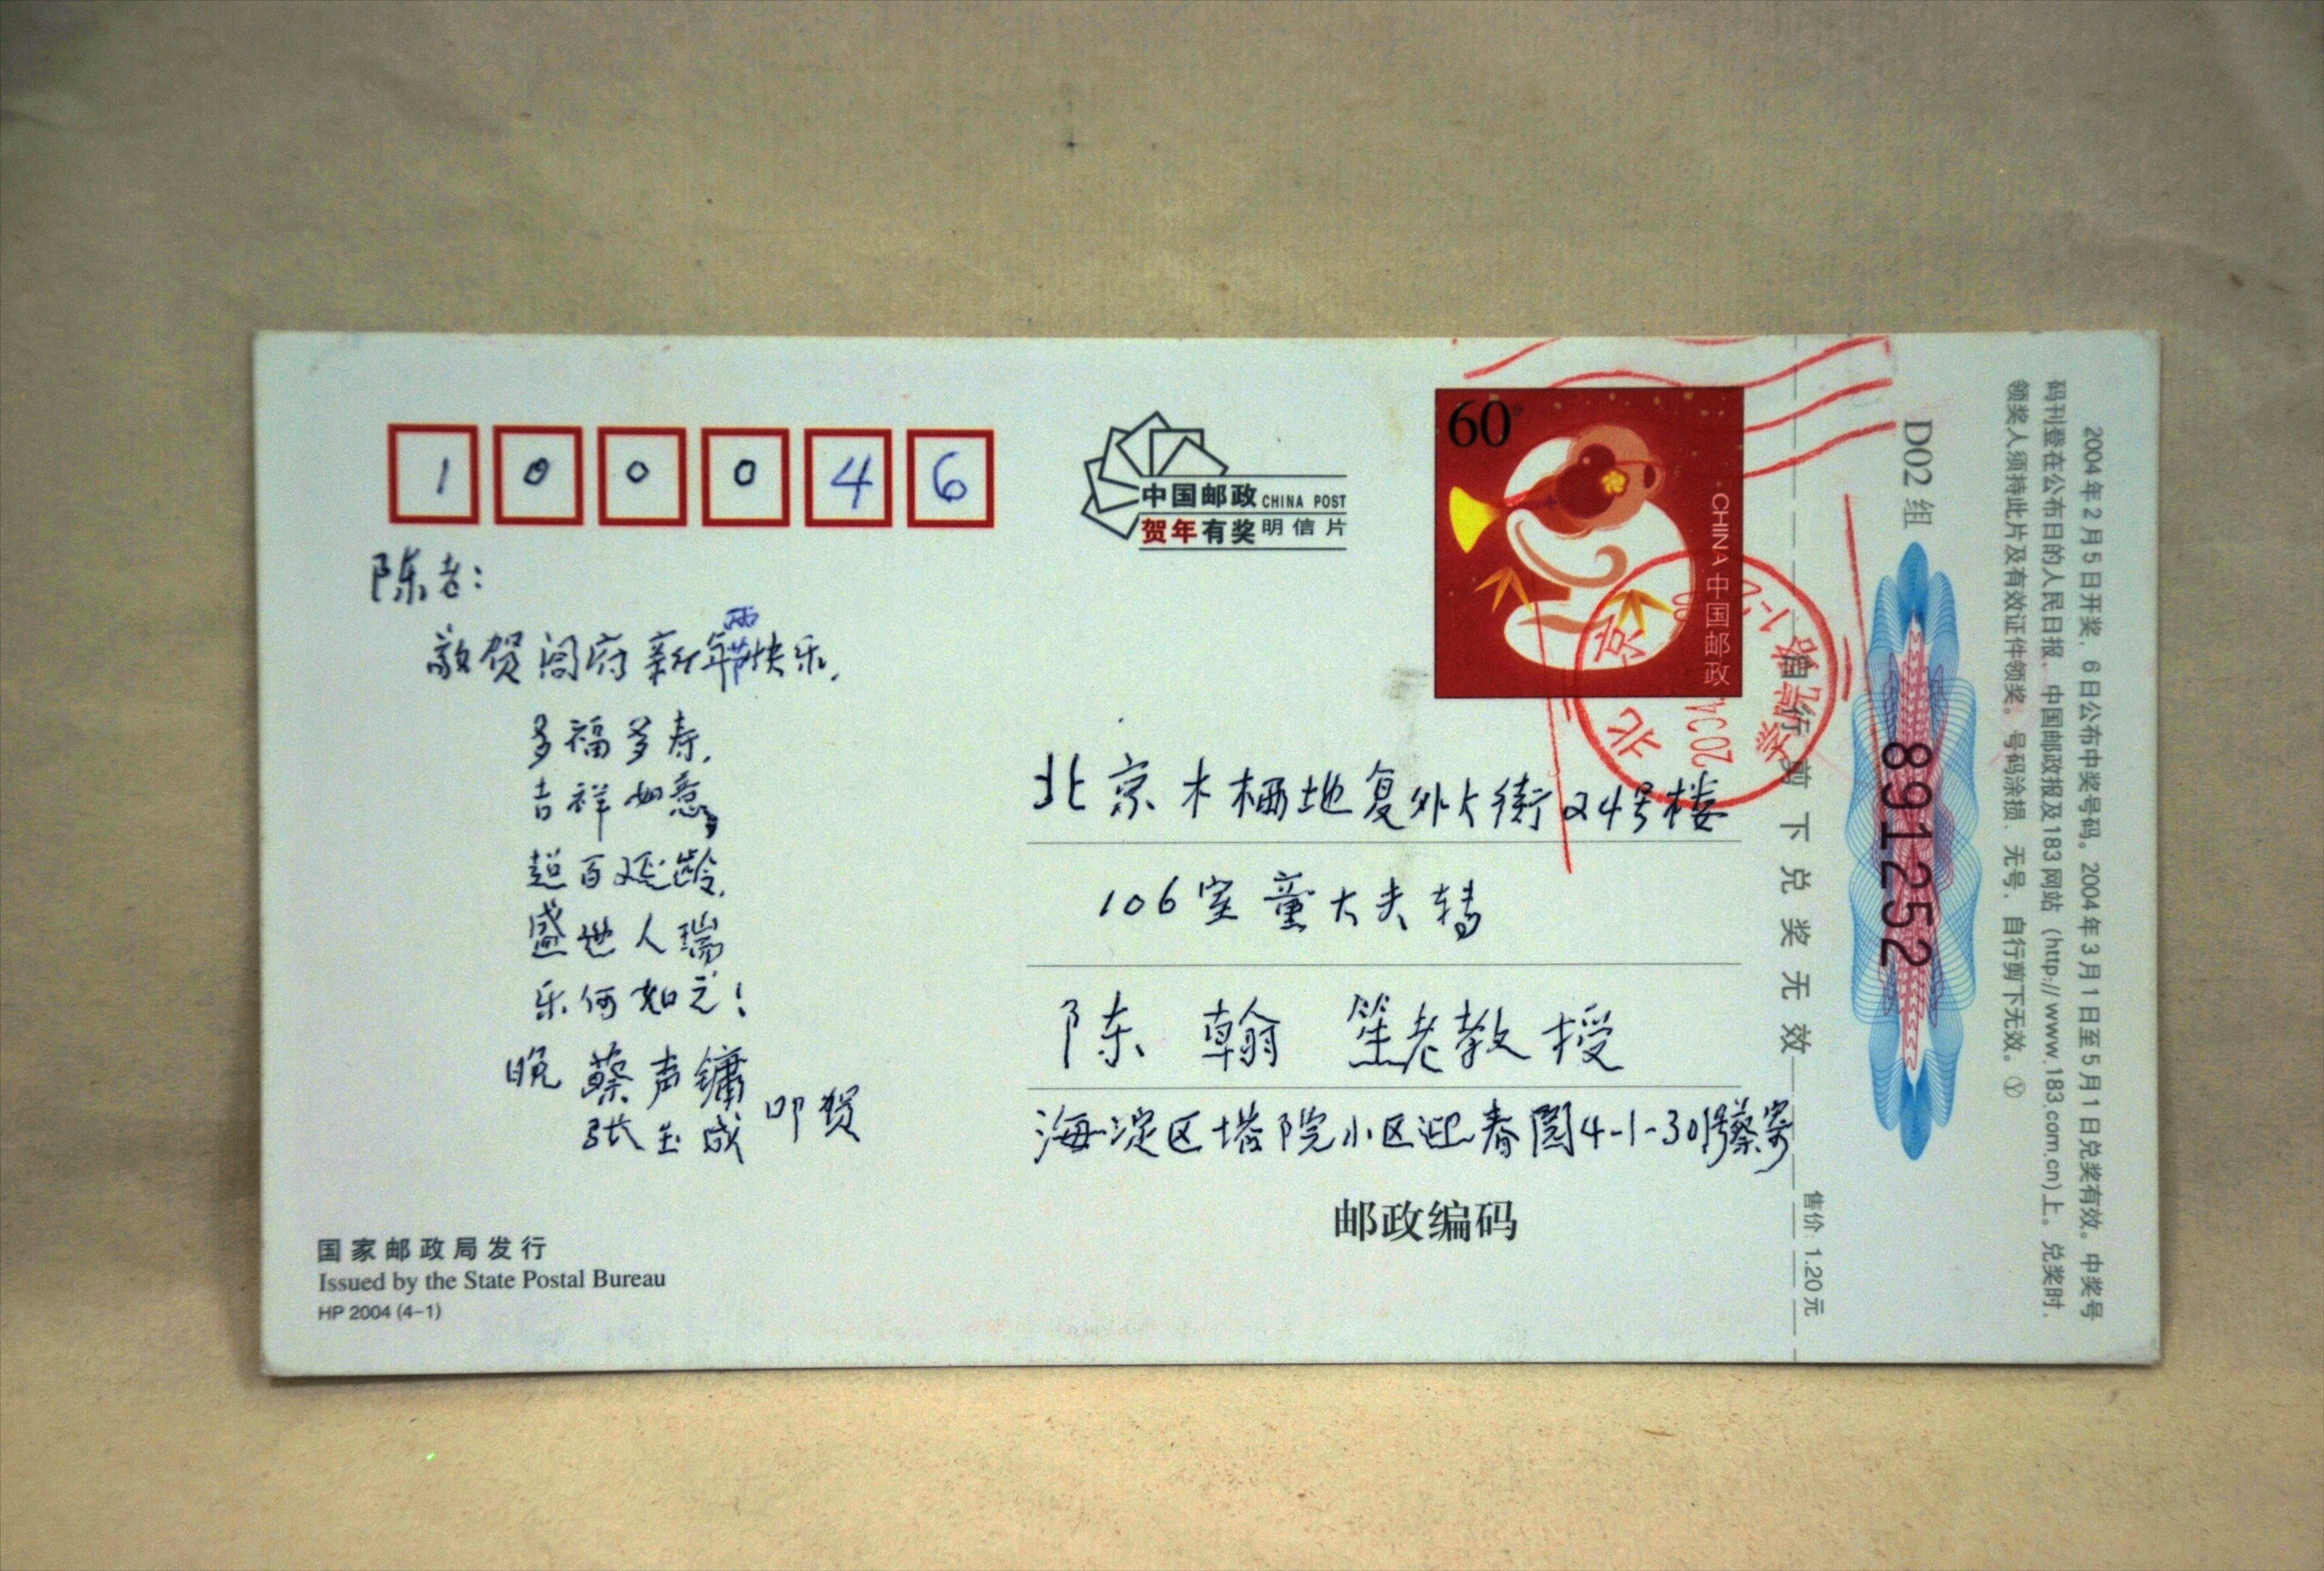 100046
中国邮政 CHINA POST
贺年有奖 明信片
60分
CHINA 中国邮政
陈老：
敬贺阖府新年两节快乐，
多福多寿，
吉祥如意，
超百延龄，
盛世人瑞
乐何如之！
晚 蔡声镛
张玉成 叩贺
北京木樨地复外大街24号楼
106室 童大夫转
陈翰笙老教授
海淀区塔院小区迎春园4-1-301号蔡寄
邮政编码
国家邮政局发行
Issued by the State Postal Bureau
HP 2004 (4-1)
北京
自行剪下兑奖无效
售价：1.20元
D02组
891252
2004年2月5日开奖，6日公布中奖号码。2004年3月1日至5月1日兑奖有效。中奖号
码刊登在公布日的人民日报、中国邮政报及183网站（http://www.183.com.cn)上。兑奖时，
领奖人须持此片及有效证件领奖。号码涂损、无号、自行剪下无效。Ⓨ